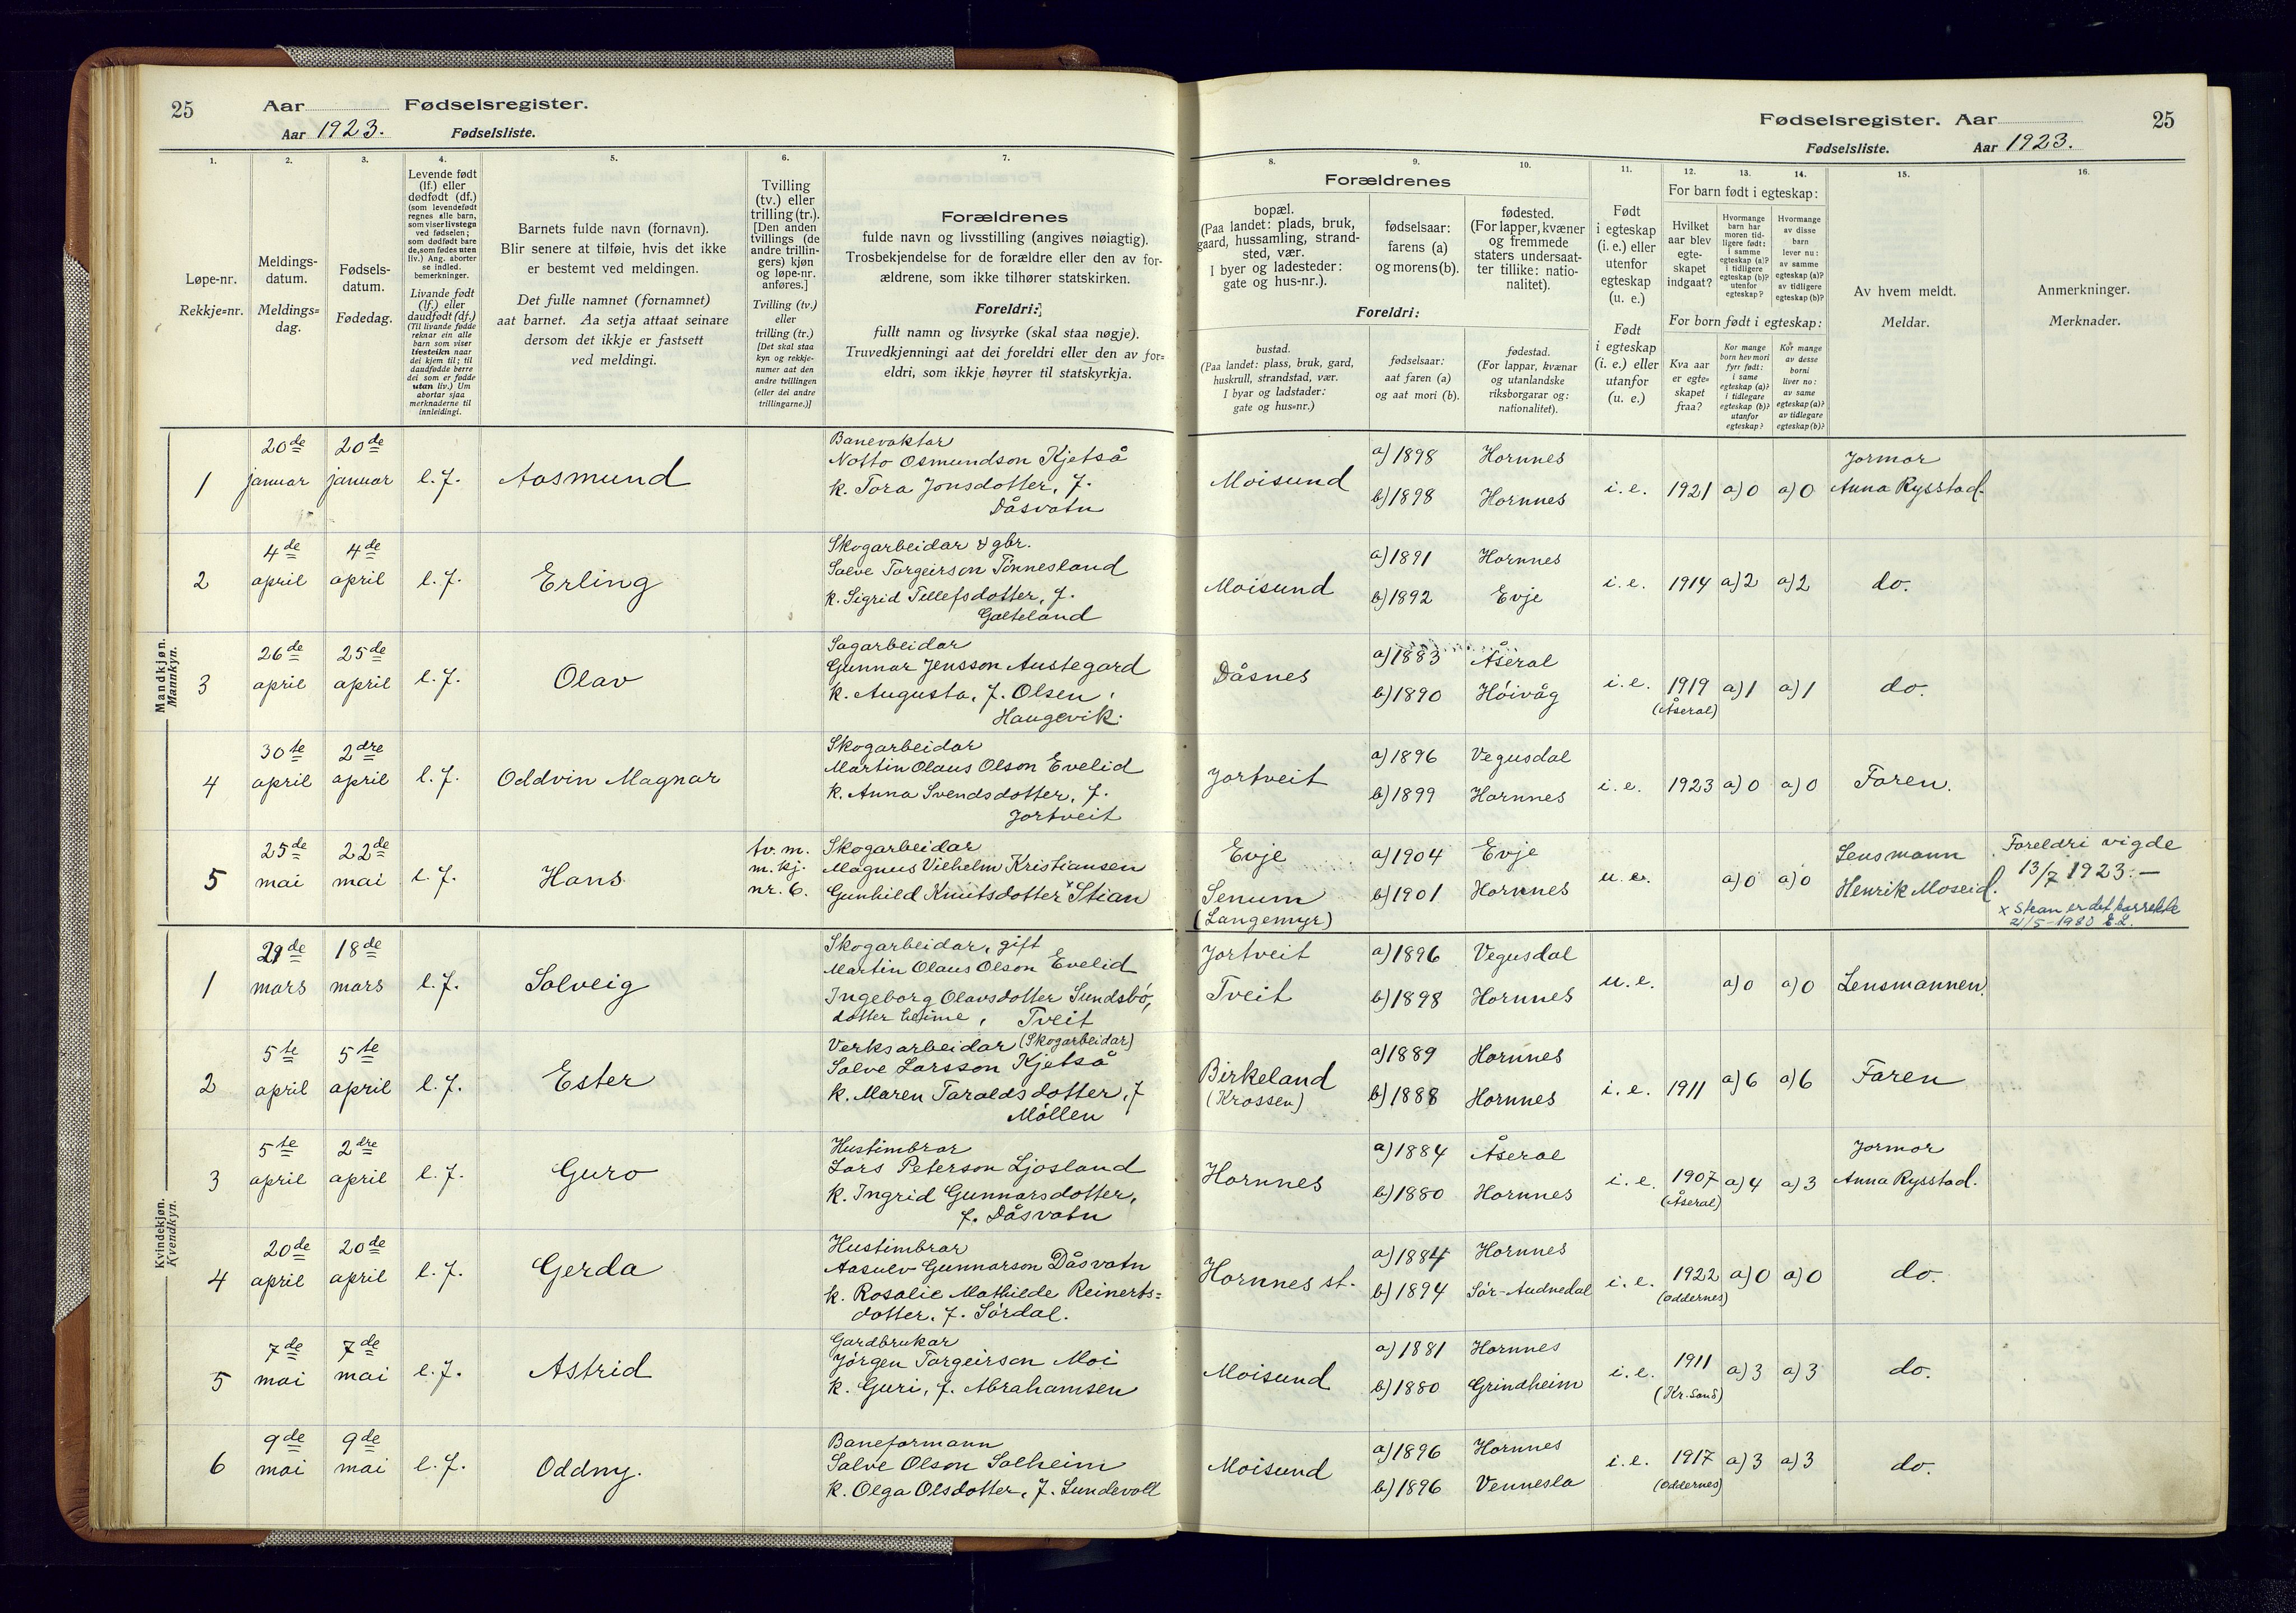 25
Aar
Fødselsregister.
Aar 1923.
Fødselsliste.
1.
2.
3.
4.
5.
6.
7.
Løpe-nr.
Rekkje=nr.
Meldings-
datum.
Meldings=
dag.
Fødsels-
datum.
Fødedag.
Levende født
(lf.) eller
dødfødt (df.)
(som levendefødt
regnes alle barn,
som viser livstegn
ved fødselen;
som dødfødt bare
de, som fødes uten
liv.) Ang. aborter
se indled.
bemerkninger.
Livande født
(lf.) eller
daudfødt (df.)
(Til livande fødde
reknar ein alle
barn som viser
livsteikn naar
dei kjem til; til
daudfødde berre
dei som er fødde
utan liv.) Um
abortar sjaa
merknaderne til
innleidingi.
Barnets fulde navn (fornavn).
Blir senere at tilføie, hvis det ikke
er bestemt ved meldingen.
Det fulle namnet (fornamnet)
aat barnet. Aa setja attaat seinare
dersom det ikkje er fastsett
ved meldingi.
Tvilling
(tv.) eller
trilling (tr.).
[Den anden
tvillings (de
andre trillin-
gers) kjøn
og løpe-nr.
anføres.]
Tvilling (tv.)
eller
trilling (tr.)
[Det skal staa
kyn og rekkje-
numer aat den
andre tvillingen
(eller dei andre
trillingarne.)]
Forældrenes
fulde navn og livsstilling (angives nøiagtig).
Trosbekjendelse for de forældre eller den av for-
ældrene, som ikke tilhører statskirken.
Foreldri:
fullt namn og livsyrke (skal staa nøgje).
Truvedkjenningi aat dei foreldri eller den av for=
eldri, som ikkje høyrer til statskyrkja.
Mandkjøn.
Mannkyn.
1
20de
januar
20de
januar
l. f.
Aasmund
Banevaktar
Notto Osmundson Kjetså
k. Tora Jonsdotter, f.
Dåsvatn
2
4de
april
4de
april
l. f.
Erling
Skogarbeidar & gbr.
Salve Targeirson Tønnesland
k. Sigrid Tellefsdotter, f.
Galteland
3
26de
april
25de
april
l. f.
Olav
Sagarbeidar
Gunnar Jensson Austegard
k. Augusta, f. Olsen,
Haugevik.
4
30te
april
2dre
april
l. f.
Oddvin Magnar
Skogarbeidar
Martin Olaus Olson Evelid
k. Anna Svendsdotter, f.
Jortveit
5
25de
mai
22de
mai
l. f.
Hans
tv. m.
m. kj.
nr. 6.
Skogarbeidar
Magnus Vilhelm Kristiansen
Gunhild Knutsdotter x Stian
Kvindekjøn.
Kvendkyn.
1
29de
mars
18de
mars
l. f.
Solveig
Skogarbeidar, gift
Martin Olaus Olson Evelid
Ingeborg Olavsdotter Sundsbø,
dotter heime, Tveit
2
5te
april
5te
april
l. f.
Ester
Verksarbeidar (Skogarbeidar)
Salve Larsson Kjetså
k. Maren Taraldsdotter, f
Møllen
3
5te
april
2dre
april
l. f.
Guro
Hustimbrar
Lars Peterson Ljosland
k. Ingrid Gunnarsdotter,
f. Dåsvatn
4
20de
april
20de
april
l. f.
Gerda
Hustimbrar
Aasulv Gunnarson Dåsvatn
k. Rosalie Mathilde Reinerts=
dotter, f. Sørdal.
5
7de
mai
7de
mai
l. f.
Astrid
Gardbrukar
Jørgen Targeirson Moi
k. Guri, f. Abrahamsen
6
9de
mai
9de
mai
l. f.
Oddny.
Baneformann
Salve Olson Solheim
k. Olga Olsdotter, f. Lundevoll
Fødselsregister. Aar
25
Fødselsliste.
Aar 1923.
8.
9.
10.
11.
12.
13.
14.
15.
16.
Forældrenes
bopæl.
(Paa landet: plads, bruk,
gaard, hussamling, strand-
sted, vær.
I byer og ladesteder:
gate og hus-nr.).
fødselsaar:
farens (a)
og morens (b).
fødested.
(For lapper, kvæner
og fremmede
staters undersaat-
ter tillike: natio-
nalitet).
Foreldri:
bustad.
(Paa landet: plass, bruk, gard,
huskrull, strandstad, vær.
I byar og ladstader:
gate og hus=nr.)
fødselsaar:
aat faren (a)
og aat mori (b).
fødestad.
(For lappar, kvænar
og utanlandske
riksborgarar og:
nationalitet).
Født
i egteskap
(i. e.) eller
utenfor
egteskap
(u. e.)
Født
i egteskap
(i. e.) eller
utanfor
(u. e.)
For barn født i egteskap:
Hvilket
aar blev
egte-
skapet
indgaat?
Hvormange
barn har
moren tid-
ligere født:
i samme
egteskap (a)?
i tidligere
egteskap (b)?
utenfor
egteskap?
Hvormange
av disse
barn
lever nu:
av samme
egteskap (a)?
av tidligere
egteskap (b)?
For born født i egteskap:
Kva aar
er egte=
skapet
fraa?
Kor mange
born hev mori
fyrr født:
i same
egteskap (a)?
i tidlegare
egteskap (b)?
utanfor
egteskap?
Kor mange
av desse
borni
liver no:
av same
egteskap (a)?
av tidlegare
egteskap (b)?
Av hvem meldt.
Meldar.
Anmerkninger.
Merknader.
Moisund
a) 1898
b) 1898
Hornnes
Hornnes
i. e.
1921
a) 0
a) 0
Jormor
Anna Rysstad.
Moisund
a) 1891
b) 1892
Hornnes
Evje
i. e.
1914
a) 2
a) 2
do.
Dåsnes
a) 1883
b) 1890
Åseral
Høivåg
i. e.
1919
(Åseral)
a) 1
a) 1
do.
Jortveit
a) 1896
b) 1899
Vegusdal
Hornnes
i. e.
1923
a) 0
a) 0
Faren.
Evje
Senum
(Langemyr)
a) 1904
b) 1901
Evje
Hornnes
u. e.
a) 0
a) 0
Lensmann
Henrik Moseid.
Foreldri vigde
13/7 1923. —
x Stean er det korrekte
21/5-1980 EL.
Jortveit
Tveit
a) 1896
b) 1898
Vegusdal
Hornnes
u. e.
a) 0
a) 0
Lensmannen.
Birkeland
(Krossen)
a) 1889
b) 1888
Hornnes
Hornnes
i. e.
1911
a) 6
a) 6
Faren
Hornnes
a) 1884
b) 1880
Åseral
Hornnes
i. e.
1907
(Åseral)
a) 4
a) 3
Jormor
Anna Rysstad.
Hornnes st.
a) 1884
b) 1894
Hornnes
Sør-Audnedal
i. e.
1922
(Oddernes)
a) 0
a) 0
do.
Moisund
a) 1881
b) 1880
Hornnes
Grindheim
i. e.
1911
(Kr.sand)
a) 3
a) 3
do.
Moisund
a) 1896
b) 1896
Hornnes
Vennesla
i. e.
1917
(Oddernes)
a) 3
a) 3
do.